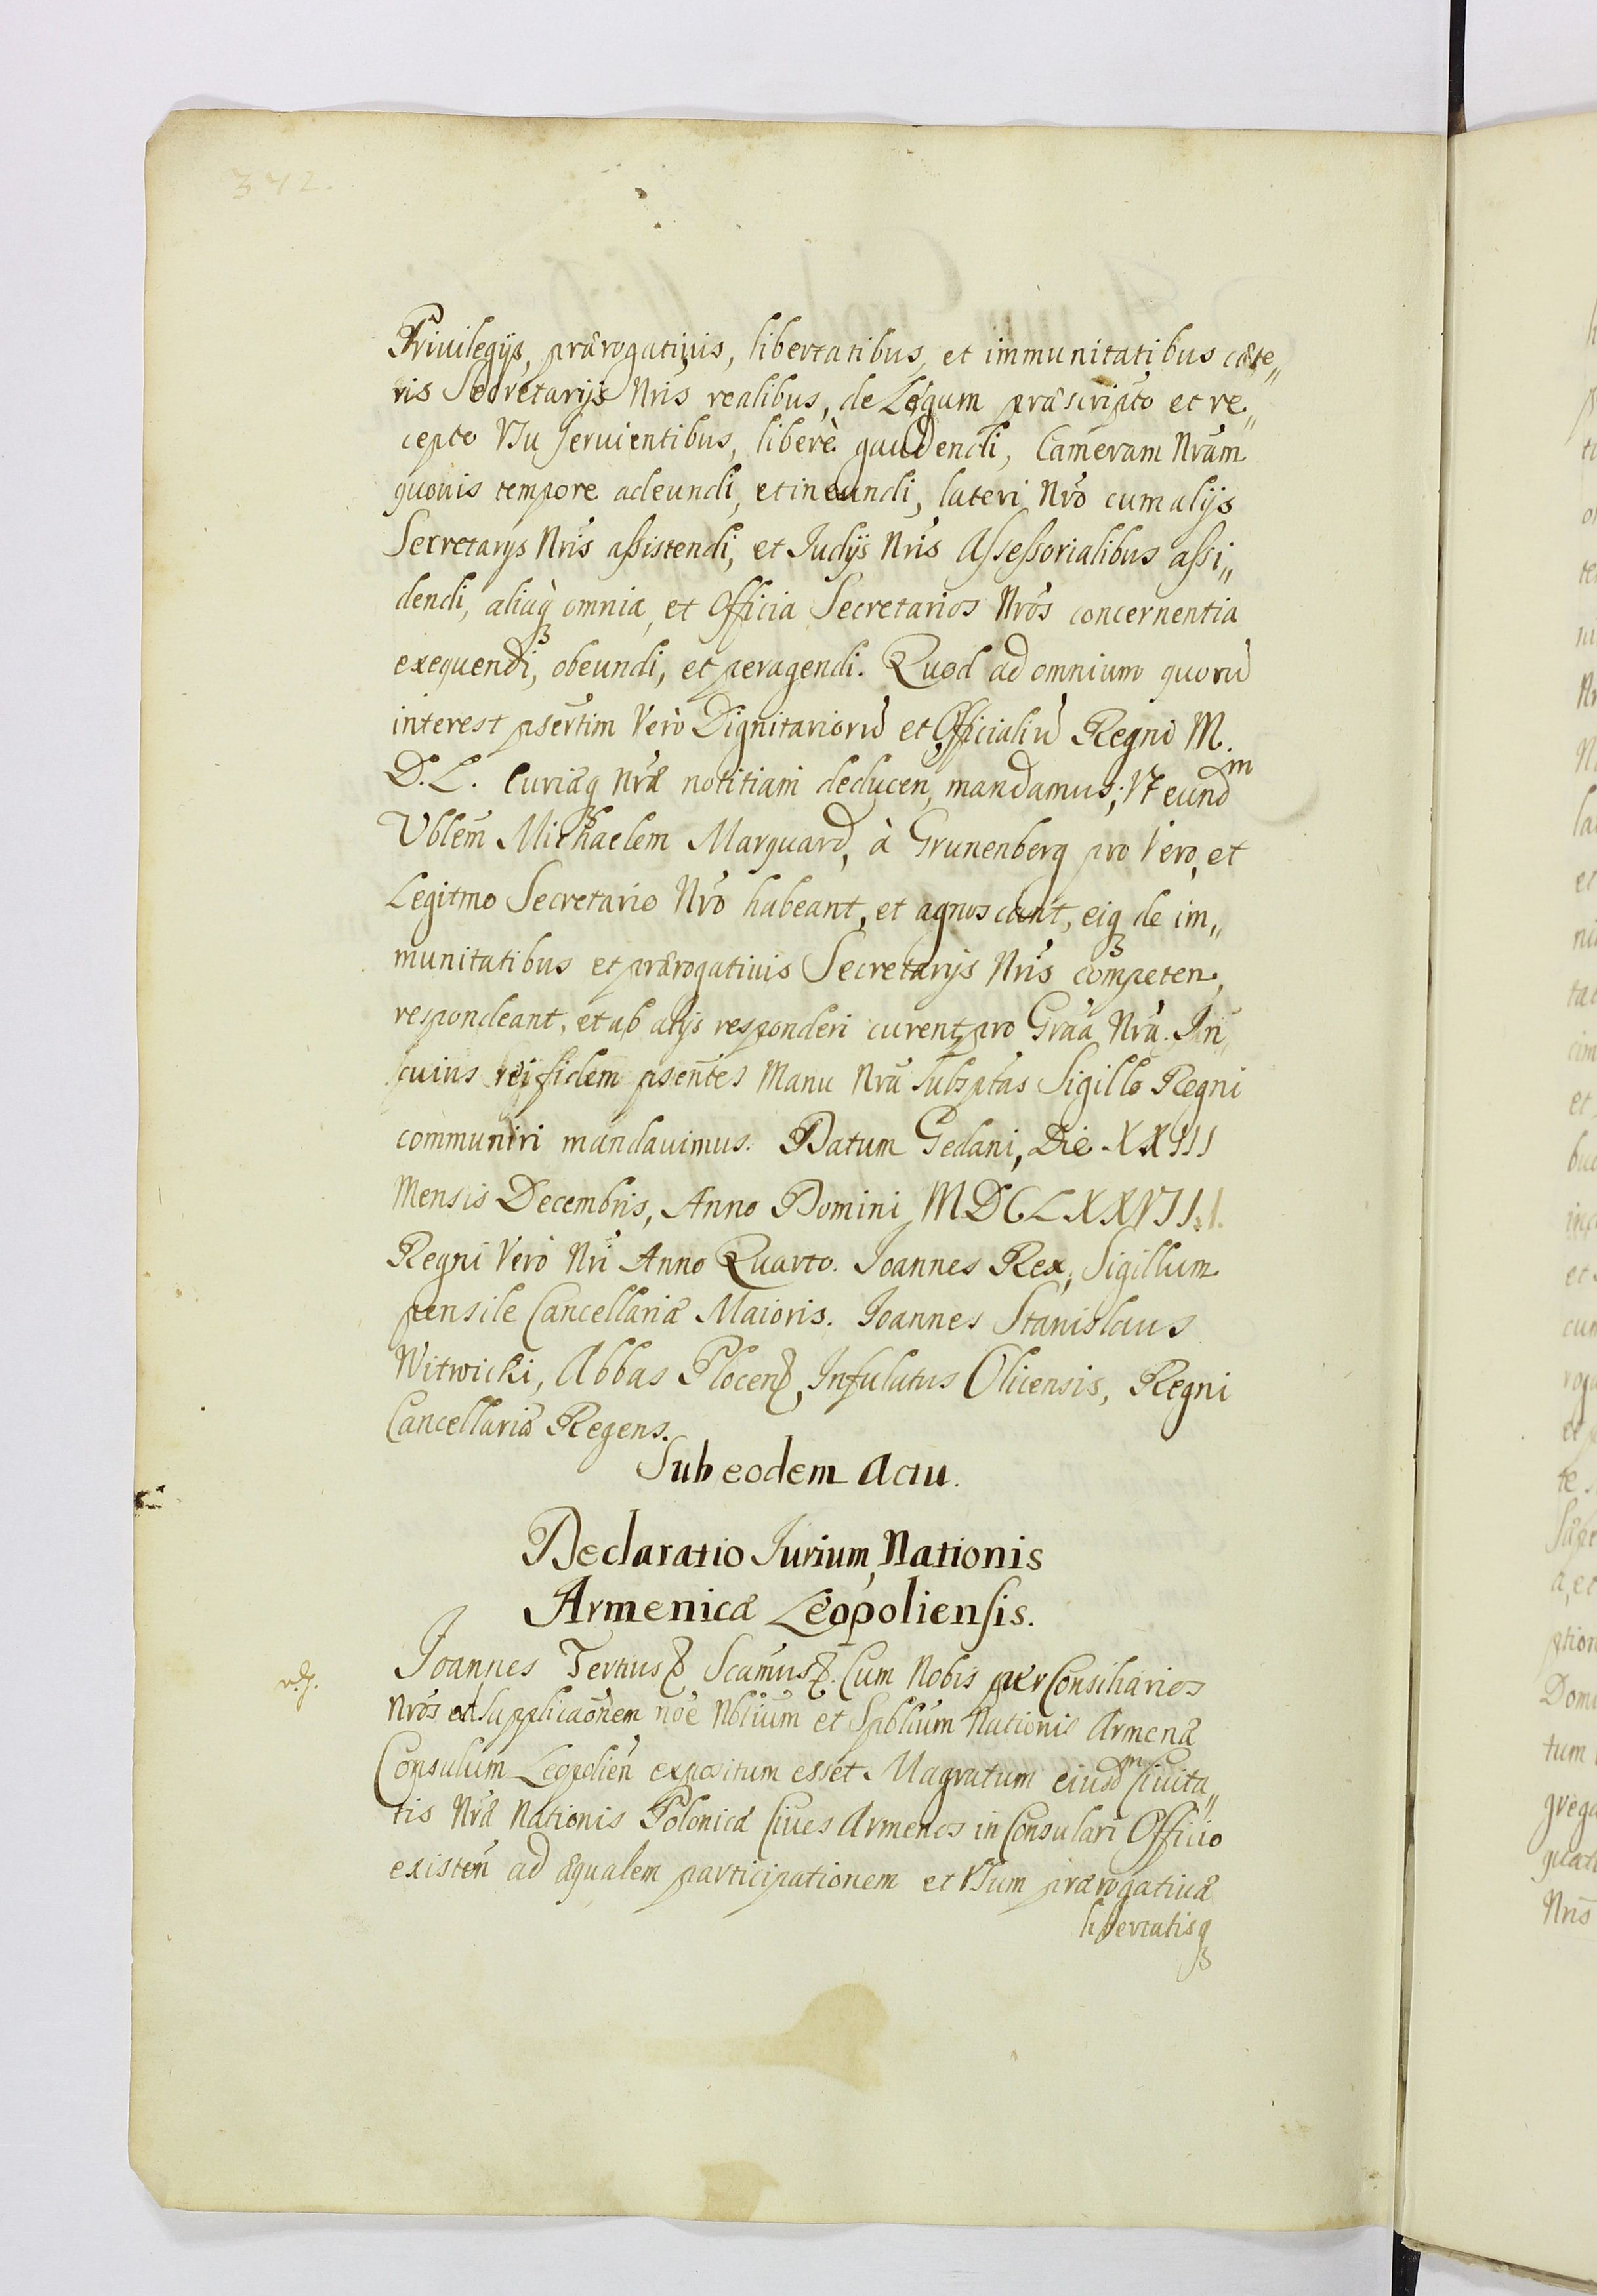 342.
Priuilegijs, prærogatiuis, libertatibus, et immunitatibus cæte„
ris Secretarijs Nris realibus, de Legum præscripto et re„
cepto Vsu seruientibus, liberè gaudendi, Cameram Nram
quouis tempore adeundi, et ineundi, lateri Nro cum alijs
Secretarijs Nris assistendi, et Judijs Nris Assessorialibus assi„
dendi, aliaqꝫ omnia, et Officia Secretarios Nros concernentia
exequendi, obeundi, et peragendi. Quod ad omnium quorū
interest psertim Verò Dignitariorū et Officialiū Regni M.
D. L. Curiæqꝫ Nræ notitiam deducen, mandamus, Vt eundm
Vblem Michaelem Marquard, à Grunenberg pro Vero, et
Legitmo Secretario Nro habeant, et agnoscant, eiqꝫ de im„
munitatibus et prærogatiuis Secretarijs Nris competen,
respondeant, et ab alijs responderi curent pro Graa Nra. In
cuius rei fidem psentes Manu Nra subsptas Sigillo Regni
communiri mandauimus. Datum Gedani, Die XXIII
Mensis Decembris, Anno Domini MDCLXXVII.
Regni Verò Nri Anno Quarto. Joannes Rex, Sigillum
pensile Cancellariæ Maioris. Joannes Stanislaus
Witwicki, Abbas Plocen, Infulatus Olicensis, Regni
Cancellariæ Regens.
Sub eodem Actu.
Declaratio Jurium Nationis
Armenicæ Leopoliensis.
Joannes Tertius Scamus. Cum Nobis per Consiliarios
Nros et supplicaonem noe Nblium et Spblium Nationis Armenæ
Consulum Leopolien expositum esset Magratum eiusdm Ciuita„
tis Nræ Nationis Polonicæ Ciues Armenos in Consulari Officio
existen ad æqualem participationem et Vsum prærogatiuæ
libertatisqꝫ